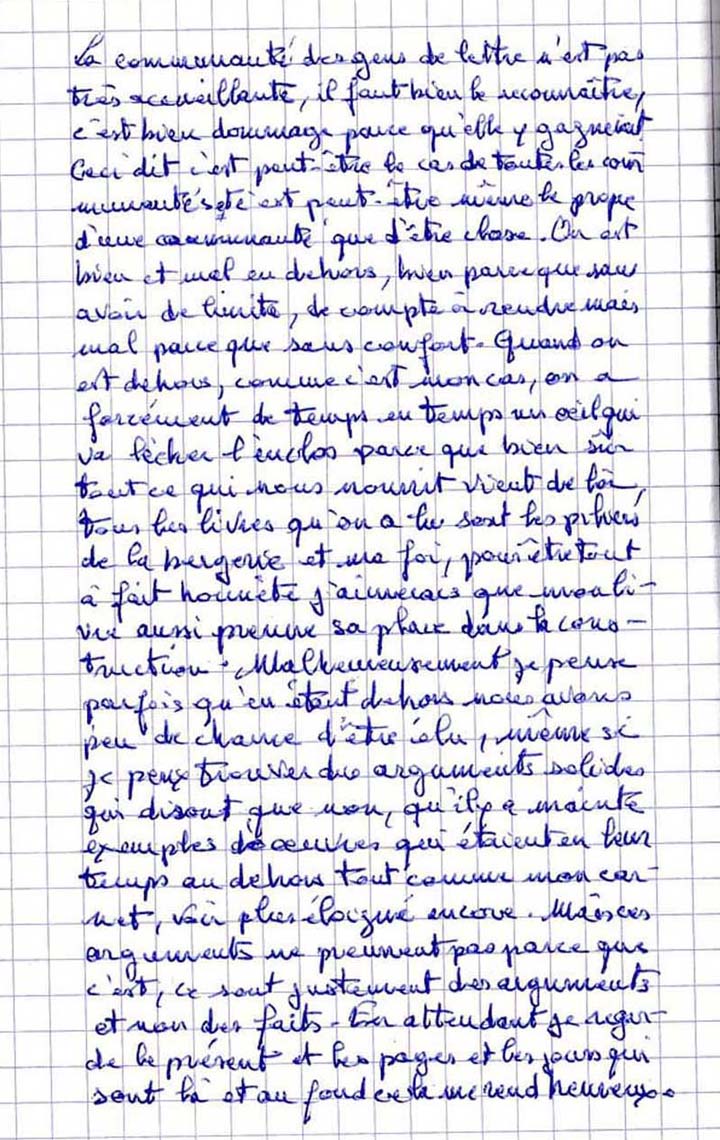 La communauté des gens de lettre n'est pas
très accueillante, il faut bien le reconnaître,
c'est bien dommage parce qu'elle y gagnerait
Ceci dit c'est peut-être le cas de toutes les com
munautés et c'est peut-être même le propre
d'une communauté que d'être close. On est
bien et mal en dehors, bien parce que sans
avoir de limite, de compte à rendre mais
mal parce que sans confort. Quand on
est dehors, comme c'est mon cas, on a
forcément de temps en temps un œil qui
va lécher l'enclos parce que bien sûr
tout ce qui nous nourrit vient de là,
tous les livres qu'on a lu sont les piliers
de la bergerie et ma foi, pour être tout
à fait honnête j'aimerais que mon li-
vre aussi prenne sa place dans la cons-
truction. Malheureusement je pense
parfois qu'en étant dehors nous avons
peu de chance d'être élu, même si
je peux trouver des arguments solides
qui disent que non, qu'il y a mainte
exemples d'œuvres qui étaient en leur
temps au dehors tout comme mon car-
net, voir plus éloigné encore. Mais ces
arguments ne prennent pas parce que
c'est, ce sont justement des arguments
et non des faits. En attendant je regar-
de le présent et les pages et les jours qui
sont là et au fond cela me rend heureux.